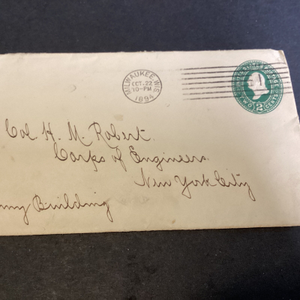 MILWAUKEE, WIS.
OCT. 22
10-PM
1894
2
TWO CENTS
Col H. M. Robert.
Corps of Engineers
New York City
Building